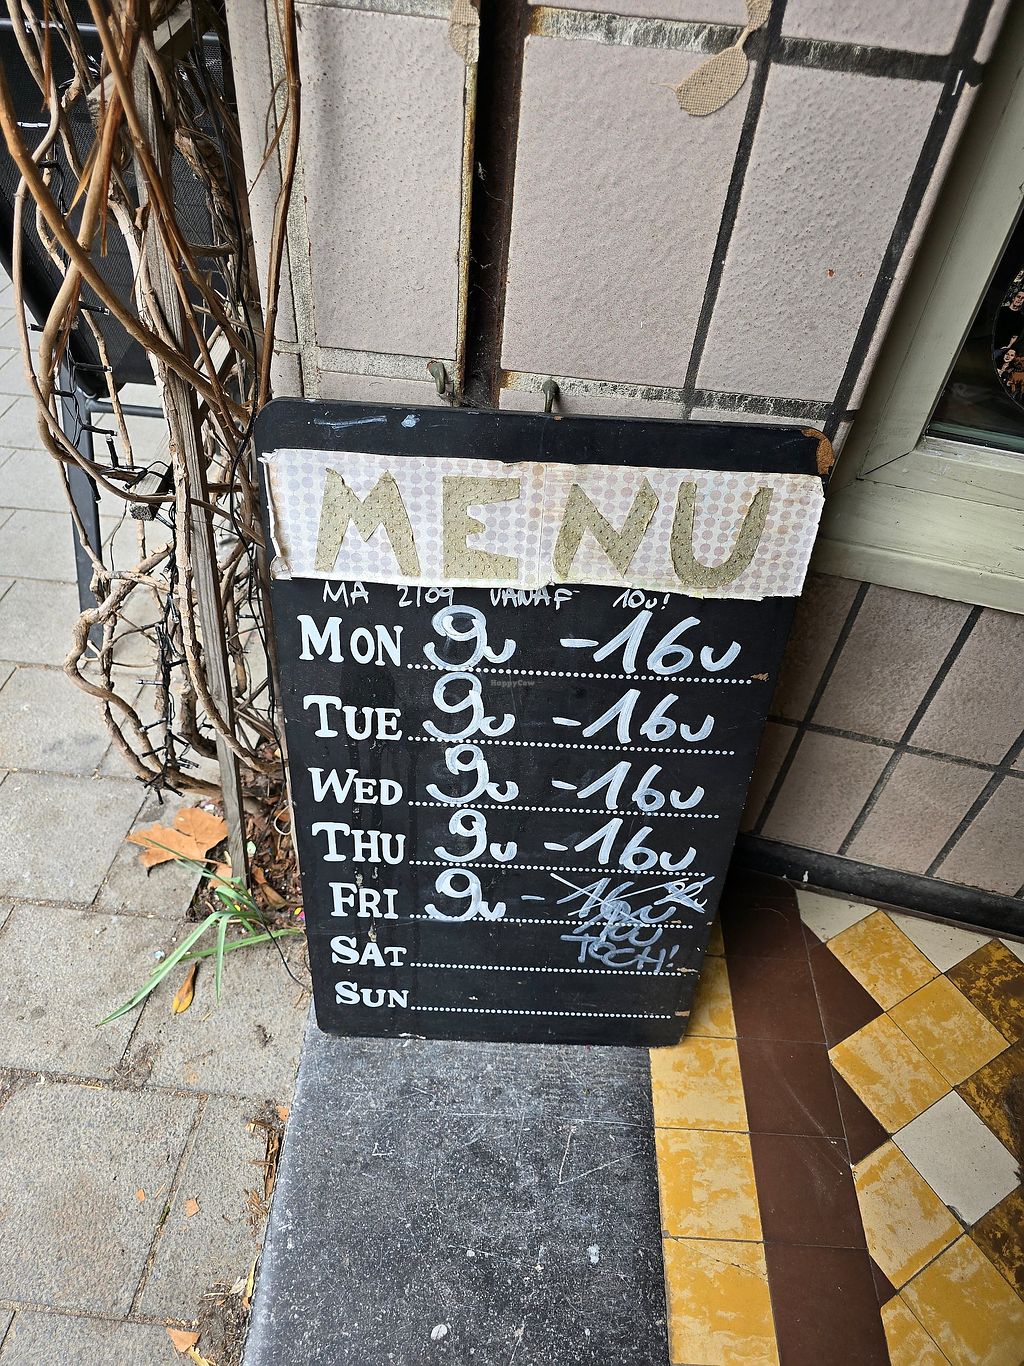 MENU
MA 2/09 VANAF 10u!
MON 9u - 16u
TUE 9u - 16u
WED 9u - 16u
THU 9u - 16u
FRI 9u -
SAT TOCH!
SUN
HappyCow